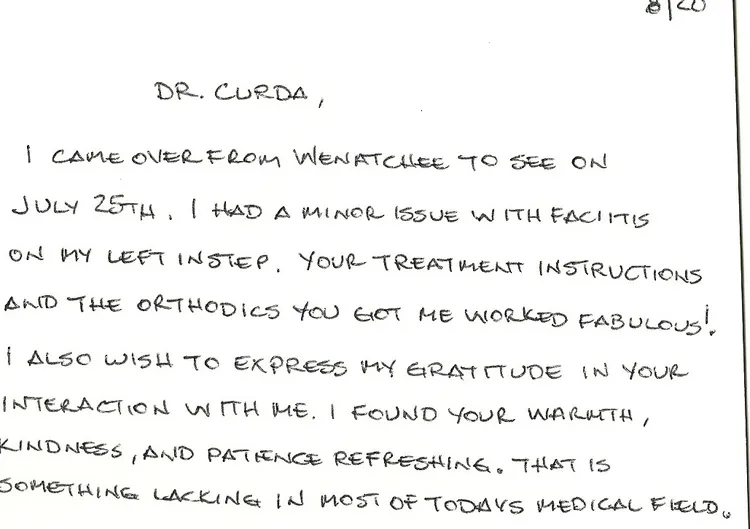 8/20
DR. CURDA,
I CAME OVER FROM WENATCHEE TO SEE ON
JULY 25TH. I HAD A MINOR ISSUE WITH FACIITIS
ON MY LEFT INSTEP. YOUR TREATMENT INSTRUCTIONS
AND THE ORTHODICS YOU GOT ME WORKED FABULOUS!.
I ALSO WISH TO EXPRESS MY GRATITUDE IN YOUR
INTERACTION WITH ME. I FOUND YOUR WARMTH,
KINDNESS, AND PATIENCE REFRESHING. THAT IS
SOMETHING LACKING IN MOST OF TODAYS MEDICAL FIELD.